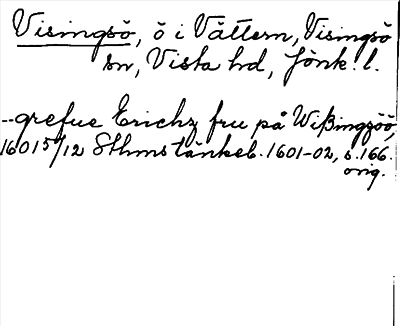 Visingsö, ö i Vättern, Visingsö
sn, Vista hd, Jönk. l.
--grefue Erichz fru på Wißingzöö,
1601 5/12 Sthms tänkeb. 1601-02, s. 166.
orig.